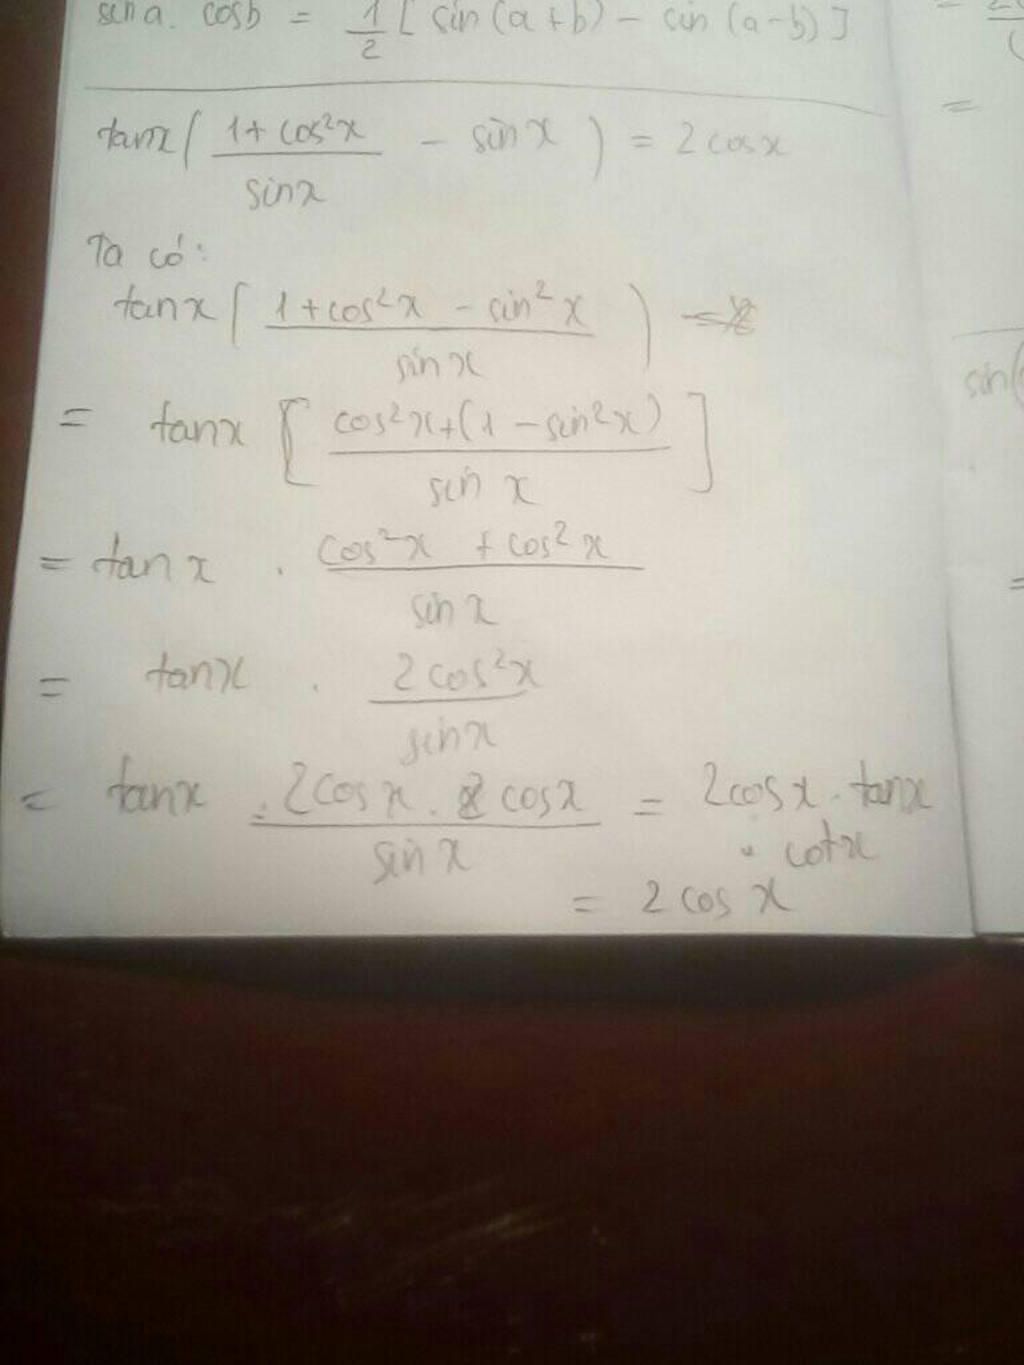 sin a. cosb = 1/2 [ sin (a+b) - sin (a-b) ]
tanx ( (1 + cos²x)/sinx - sinx ) = 2 cosx
Ta có:
tanx ( (1 + cos²x - sin²x)/sinx )
= tanx [ (cos²x + (1 - sin²x))/sin x ]
= tan x . (cos²x + cos²x)/sin x
= tanx . 2 cos²x/sinx
= tanx . (2cos x . cosx)/sin x = 2cos x . tanx
. cotx
= 2 cos x
sin(